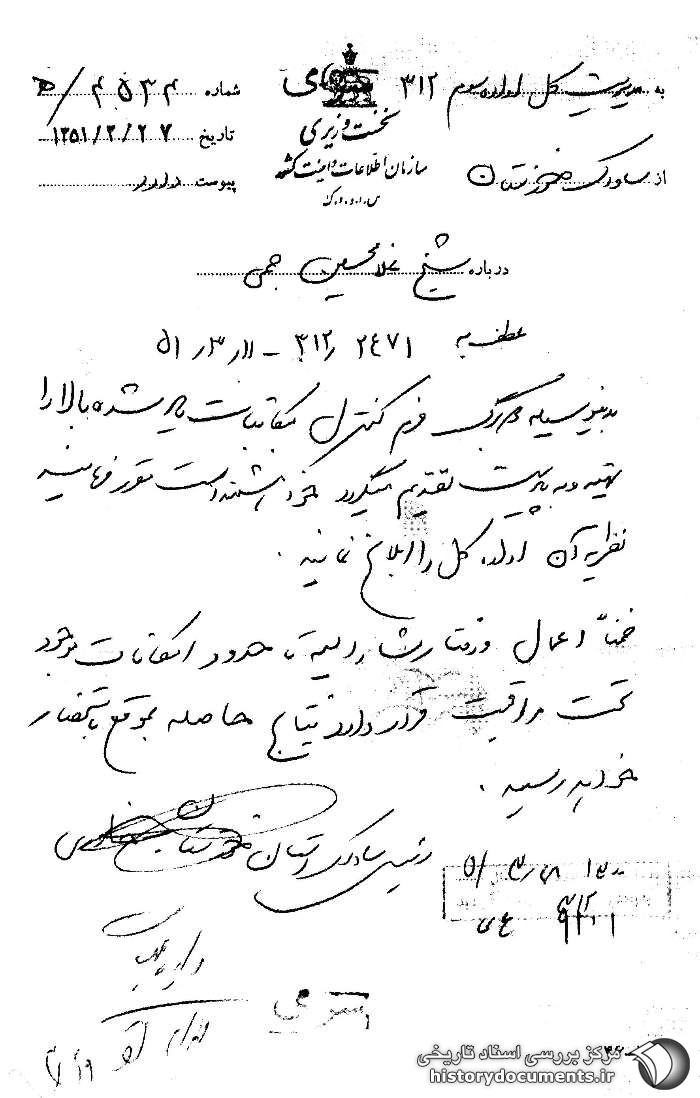 به مدیریت کل اداره سوم ۳۱۲
از ساواک خوزستان
نخست وزیری
سازمان اطلاعات و امنیت کشور
س.ا.و.ا.ک
شماره ۴۵۳۴ / ھ
تاریخ ۱۳۵۱/۳/۲۷
پیوست دارد
درباره شیخ غلامحسین جمی
عطف به ۲۴۷۱ / ۳۱۲ - ۵۱/۳/۱۱
بدینوسیله دو برگ فرم کنترل مکاتبات نامبرده بالا را
تهیه و به پیوست تقدیم میگردد خواهشمند است مقرر فرمایند
نظریه آن اداره کل را ابلاغ نمایند.
ضمناً اعمال و رفتار مشارالیه تا حدود امکانات موجود
تحت مراقبت قرار دارد نتایج حاصله بموقع باستحضار
خواهد رسید.
رئیس ساواک استان خوزستان
سری
مرکز بررسی اسناد تاریخی
historydocuments.ir